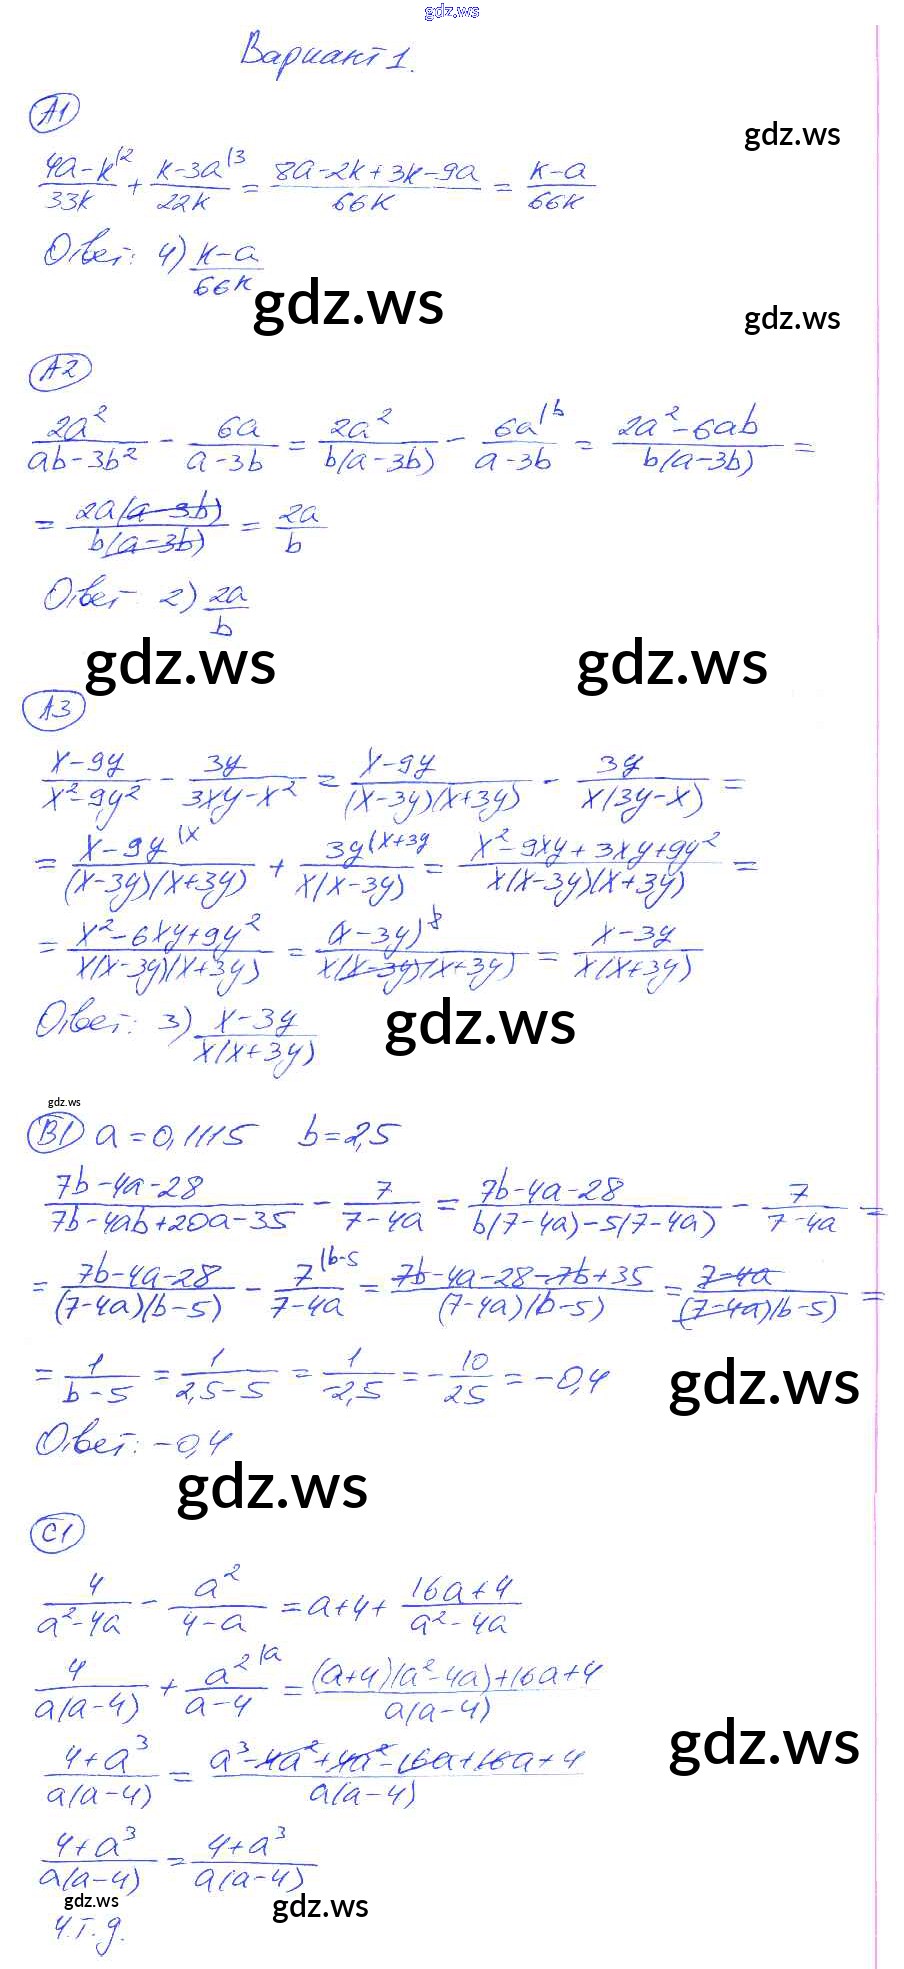 gdz.ws
Вариант 1.
А1
gdz.ws
(4a-k)/33k |2 + (k-3a)/22k |3 = (8a-2k+3k-9a)/66k = (k-a)/66k
Ответ: 4) (k-a)/66k
gdz.ws
gdz.ws
А2
2a²/(ab-3b²) - 6a/(a-3b) = 2a²/(b(a-3b)) - 6a/(a-3b) |b = (2a²-6ab)/(b(a-3b)) =
= 2a(a-3b)/(b(a-3b)) = 2a/b
Ответ 2) 2a/b
gdz.ws
gdz.ws
А3
(x-9y)/(x²-9y²) - 3y/(3xy-x²) = (x-9y)/((x-3y)(x+3y)) - 3y/(x(3y-x)) =
= (x-9y)/((x-3y)(x+3y)) |x + 3y/(x(x-3y)) |x+3y = (x²-9xy+3xy+9y²)/(x(x-3y)(x+3y)) =
= (x²-6xy+9y²)/(x(x-3y)(x+3y)) = (x-3y)²/(x(x-3y)(x+3y)) = (x-3y)/(x(x+3y))
Ответ: 3) (x-3y)/(x(x+3y))
gdz.ws
gdz.ws
В1 a=0,1115 b=2,5
(7b-4a-28)/(7b-4ab+20a-35) - 7/(7-4a) = (7b-4a-28)/(b(7-4a)-5(7-4a)) - 7/(7-4a) =
= (7b-4a-28)/((7-4a)(b-5)) - 7/(7-4a) |b-5 = (7b-4a-28-7b+35)/((7-4a)(b-5)) = (7-4a)/((7-4a)(b-5)) =
= 1/(b-5) = 1/(2,5-5) = 1/(-2,5) = -10/25 = -0,4
gdz.ws
Ответ: -0,4
gdz.ws
С1
4/(a²-4a) - a²/(4-a) = a+4+ (16a+4)/(a²-4a)
4/(a(a-4)) + a²/(a-4) |a = ((a+4)(a²-4a)+16a+4)/(a(a-4))
gdz.ws
(4+a³)/(a(a-4)) = (a³-4a²+4a²-16a+16a+4)/(a(a-4))
(4+a³)/(a(a-4)) = (4+a³)/(a(a-4))
gdz.ws
gdz.ws
ч.т.д.